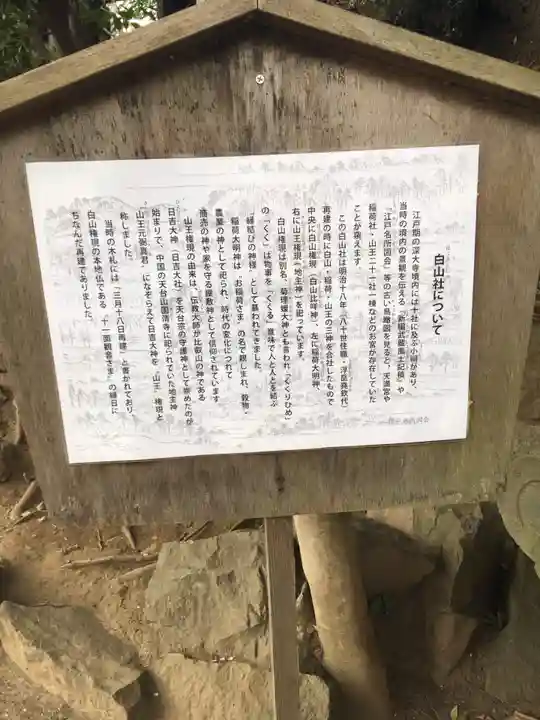 白山社について
江戸期の深大寺境内には十社に及ぶ小祠があり、
当時の境内の景観を伝える『新編武蔵風土記稿』や
『江戸名所図会』等の古い鳥瞰図を見ると、天満宮や
稲荷社・山王二十一社一棟などのお宮が存在していた
ことが窺えます。
この白山社は明治十八年(八十世住職・浮岳堯欽代)
再建の時に白山・稲荷・山王の三神を合社したもので
中央に白山権現(白山比咩神)、左に稲荷大明神、
右に山王権現(地主神)を祀っています。
白山権現は別名、菊理媛大神とも言われ「くくりひめ」
の「くく」は物事を「くくる」意味で人と人とを結ぶ
「縁結びの神様」として慕われてきました。
稲荷大明神は「お稲荷さま」の名で親しまれ、穀物・
農業の神として祀られ、時代の変化につれて
商売の神や家を守る屋敷神として信仰されています
山王権現の由来は、伝教大師が比叡山の神である
日吉大神(日吉大社)を天台宗の守護神として崇めたのが
始まりで、中国の天台山国清寺に祀られていた地主神
「山王元弼真君」になぞらえて日吉大神を「山王」権現と
称しました。
当時の木札には「三月十八日再建」と書かれており
白山権現の本地仏である「十一面観音さま」の縁日に
ちなんだ再建でありました。